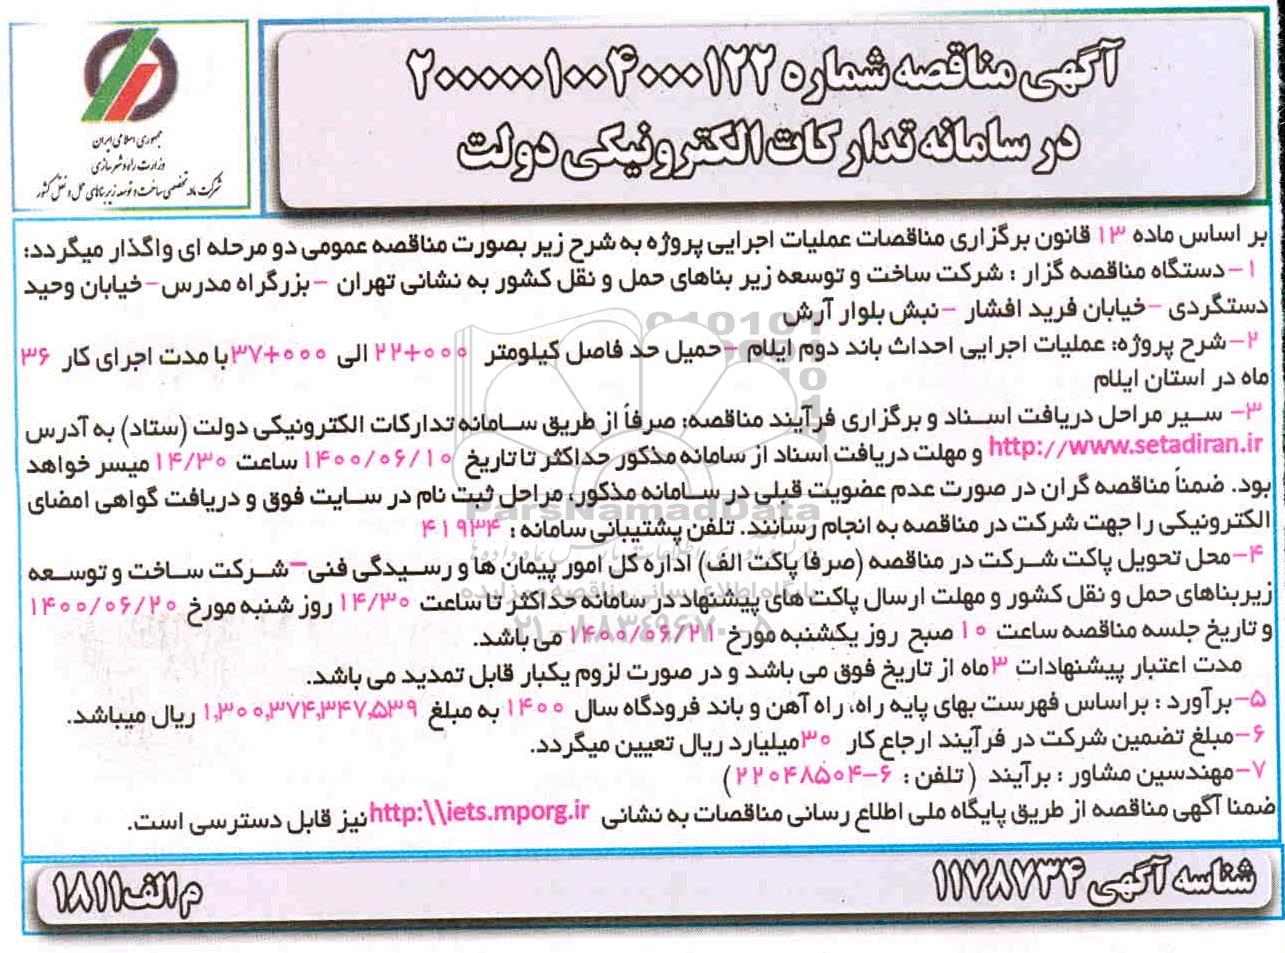 آگهی مناقصه شماره ۲۰۰۰۰۰۱۰۰۴۰۰۰۱۲۲
در سامانه تدارکات الکترونیکی دولت
جمهوری اسلامی ایران
وزارت راه و شهرسازی
شرکت مادر تخصصی ساخت و توسعه زیربناهای حمل و نقل کشور
بر اساس ماده ۱۳ قانون برگزاری مناقصات عملیات اجرایی پروژه به شرح زیر بصورت مناقصه عمومی دو مرحله ای واگذار میگردد:
۱-دستگاه مناقصه گزار : شرکت ساخت و توسعه زیر بناهای حمل و نقل کشور به نشانی تهران -بزرگراه مدرس-خیابان وحید
دستگردی -خیابان فرید افشار -نبش بلوار آرش
۲-شرح پروژه: عملیات اجرایی احداث باند دوم ایلام -حمیل حد فاصل کیلومتر ۲۲+۰۰۰ الی ۳۷+۰۰۰ با مدت اجرای کار ۳۶
ماه در استان ایلام
۳- سیر مراحل دریافت اسناد و برگزاری فرآیند مناقصه: صرفاً از طریق سامانه تدارکات الکترونیکی دولت (ستاد) به آدرس
http://www.setadiran.ir و مهلت دریافت اسناد از سامانه مذکور حداکثر تا تاریخ ۱۴۰۰/۰۶/۱۰ ساعت ۱۴/۳۰ میسر خواهد
بود. ضمناً مناقصه گران در صورت عدم عضویت قبلی در سامانه مذکور، مراحل ثبت نام در سایت فوق و دریافت گواهی امضای
الکترونیکی را جهت شرکت در مناقصه به انجام رسانند. تلفن پشتیبانی سامانه : ۴۱۹۳۴
۴-محل تحویل پاکت شرکت در مناقصه (صرفا پاکت الف) اداره کل امور پیمان ها و رسیدگی فنی-شرکت ساخت و توسعه
زیربناهای حمل و نقل کشور و مهلت ارسال پاکت های پیشنهاد در سامانه حداکثر تا ساعت ۱۴/۳۰ روز شنبه مورخ ۱۴۰۰/۰۶/۲۰
و تاریخ جلسه مناقصه ساعت ۱۰ صبح روز یکشنبه مورخ ۱۴۰۰/۰۶/۲۱ می باشد.
مدت اعتبار پیشنهادات ۳ماه از تاریخ فوق می باشد و در صورت لزوم یکبار قابل تمدید می باشد.
۵-برآورد : براساس فهرست بهای پایه راه، راه آهن و باند فرودگاه سال ۱۴۰۰ به مبلغ ۱,۳۰۰,۳۷۴,۳۴۷,۵۳۹ ریال میباشد.
۶-مبلغ تضمین شرکت در فرآیند ارجاع کار ۳۰میلیارد ریال تعیین میگردد.
۷-مهندسین مشاور : برآیند (تلفن : ۶-۲۲۰۴۸۵۰۴)
ضمنا آگهی مناقصه از طریق پایگاه ملی اطلاع رسانی مناقصات به نشانی http:\\iets.mporg.ir نیز قابل دسترسی است.
شناسه آگهی ۱۱۷۸۷۳۴
م الف۱۸۱۱
ParsNamadData
پایگاه اطلاع رسانی مناقصه و مزایده
۰۲۱-۸۸۳۴۹۶۷۰-۵